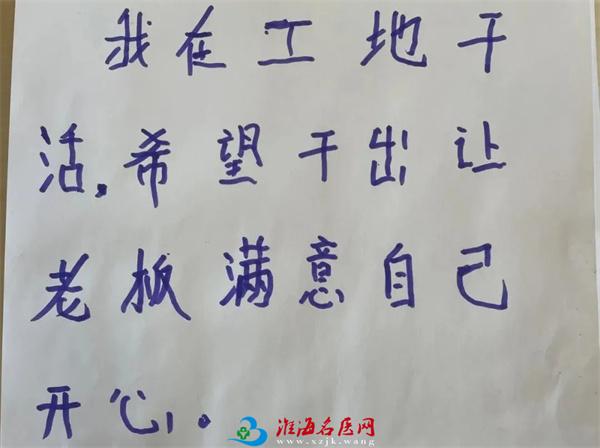 我在工地干
活.希望干出让
老板满意自己
开心。
淮海名医网
www.xzjk.wang